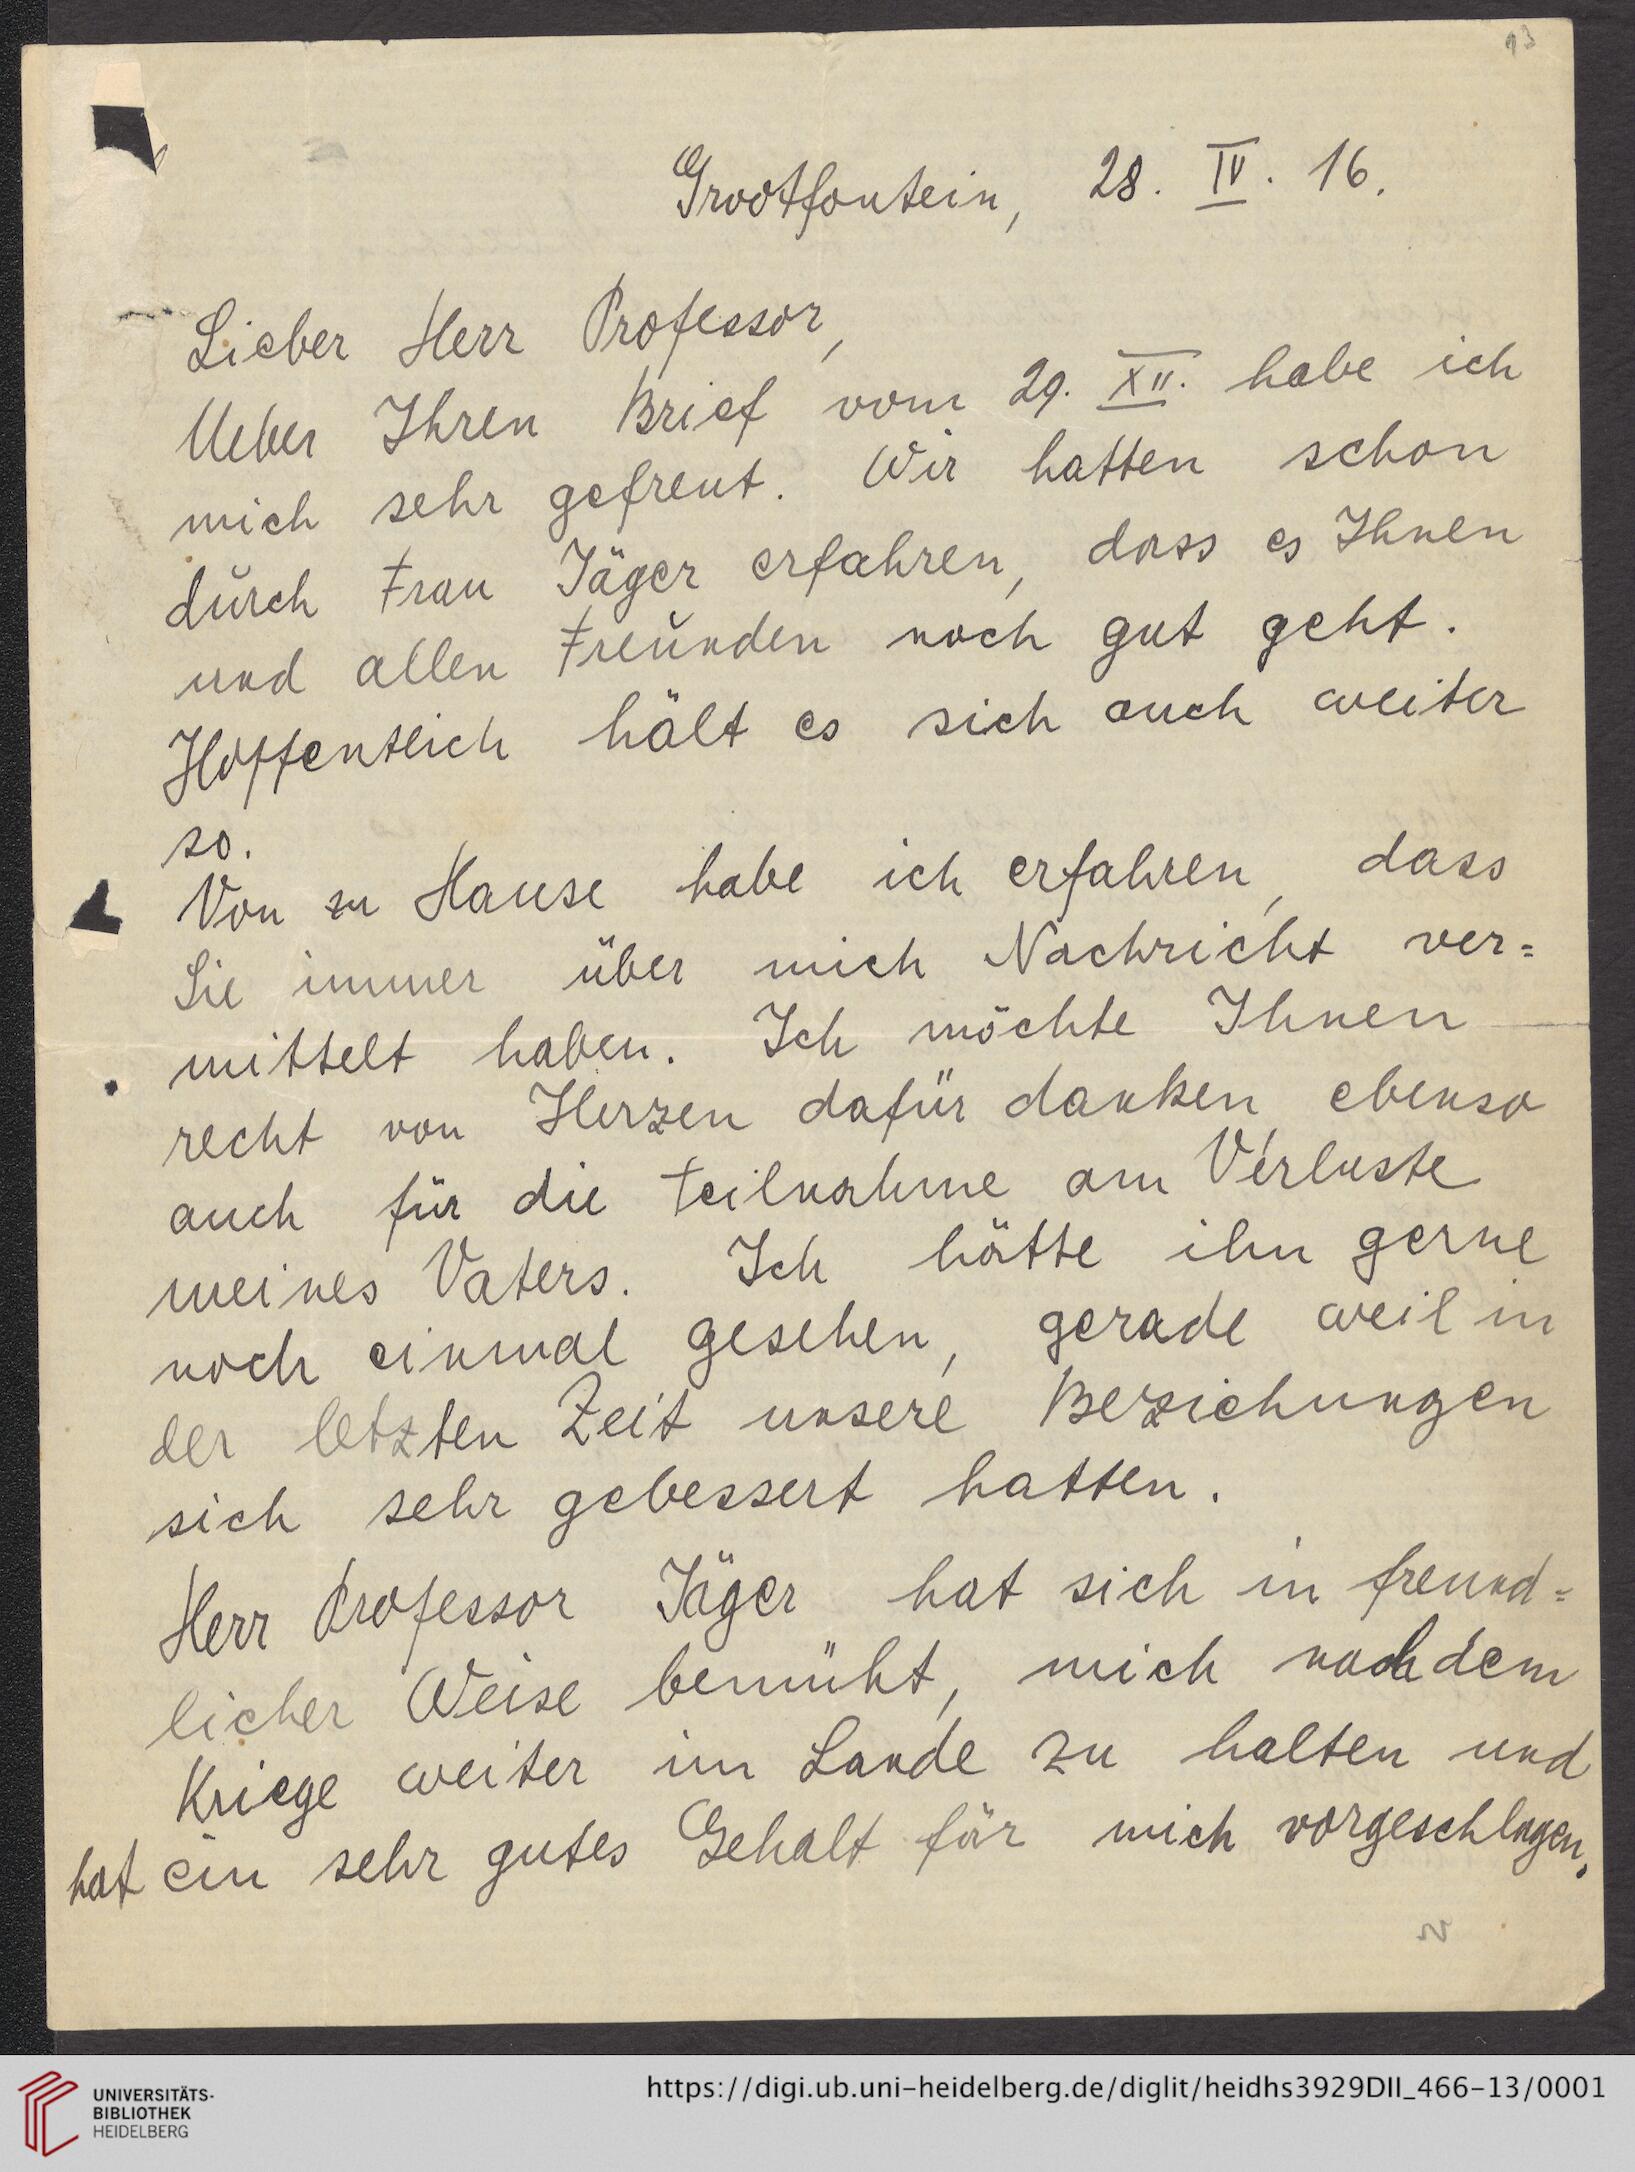 13
Grootfontein, 28. IV. 16.
Lieber Herr Professor,
Ueber Ihren Brief vom 29. XII. habe ich
mich sehr gefreut. Wir hatten schon
durch Frau Jäger erfahren, dass es Ihnen
und allen Freunden noch gut geht.
Hoffentlich hält es sich auch weiter
so.
Von zu Hause habe ich erfahren, dass
Sie immer über mich Nachricht ver=
mittelt haben. Ich möchte Ihnen
recht von Herzen dafür danken, ebenso
auch für die Teilnahme am Verluste
meines Vaters. Ich hätte ihn gerne
noch einmal gesehen, gerade weil in
der letzten Zeit unsere Beziehungen
sich sehr gebessert hatten.
Herr Professor Jäger hat sich in freund=
licher Weise bemüht, mich nach dem
Kriege weiter im Lande zu halten und
hat ein sehr gutes Gehalt für mich vorgeschlagen.
UNIVERSITÄTS-
BIBLIOTHEK
HEIDELBERG
https://digi.ub.uni-heidelberg.de/diglit/heidhs3929DII_466-13/0001